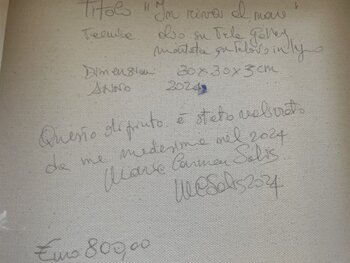 Titolo "In riva al mare"
Tecnica olio su tela
montata su telaio in legno
Dimensioni 30x30x3cm
Anno 2024
Questo dipinto è stato realizzato
da me medesima nel 2024
Maria Carmen Salis
MCSalis 2024
Euro 800,00